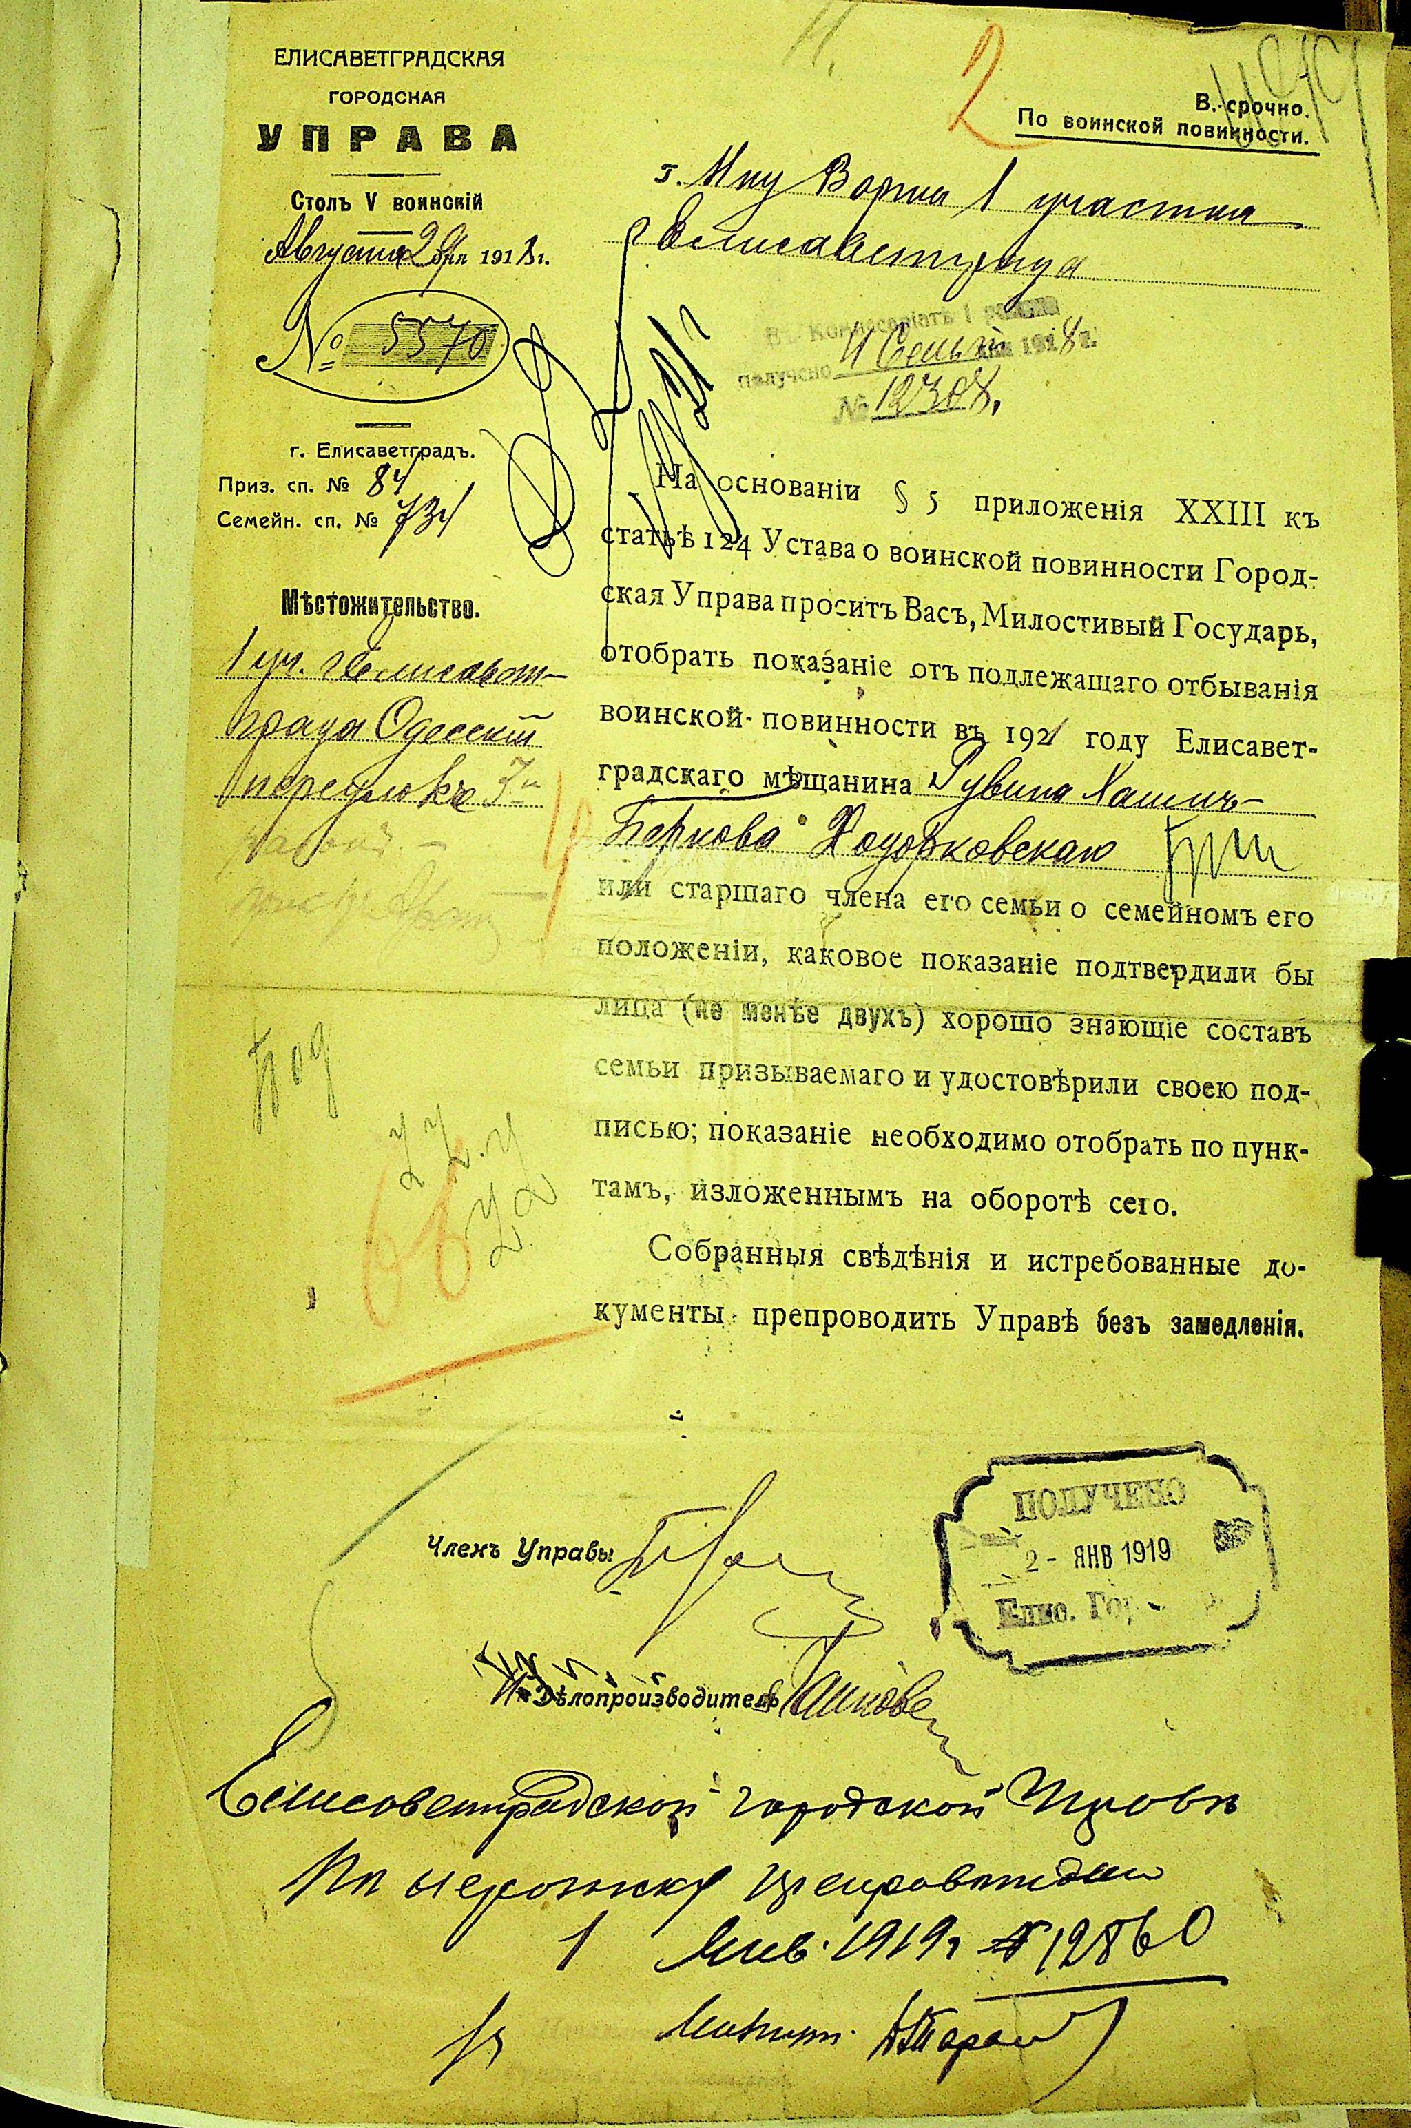 ЕЛИСАВЕТГРАДСКАЯ
ГОРОДСКАЯ
УПРАВА
Столъ V воинскій
Августа 29 дня 1918 г.
№ 5570
г. Елисаветградъ.
Приз. сп. № 84
Семейн. сп. № 734
Мѣстожительство.
1 уч. г. Елисавет-
града Одесскій
переулокъ
2
В.-срочно.
По воинской повинности.
г. Нку Варты 1 участка
Елисаветграда
Въ Комиссаріатъ 1 района
получено 11 Сент. дня 1918 г.
№ 12308.
На основаніи § 5 приложенія XXIII къ
статьѣ 124 Устава о воинской повинности Город-
ская Управа проситъ Васъ, Милостивый Государь,
отобрать показаніе отъ подлежащаго отбыванія
воинской повинности въ 1921 году Елисавет-
градскаго мѣщанина Рувина Хаимъ-
Беркова Ходорковскаго
или старшаго члена его семьи о семейномъ его
положеніи, каковое показаніе подтвердили бы
лица (не менѣе двухъ) хорошо знающіе составъ
семьи призываемаго и удостовѣрили своею под-
писью; показаніе необходимо отобрать по пунк-
тамъ, изложеннымъ на оборотѣ сего.
Собранныя свѣдѣнія и истребованные до-
кументы препроводить Управѣ безъ замедленія.
68
Членъ Управы
ПОЛУЧЕНО
2 - ЯНВ 1919
Елис. Гор
Дѣлопроизводитель
Елисаветградской городской Управѣ
По исполненіи препровождаю
1 Янв. 1919 г. № 12860